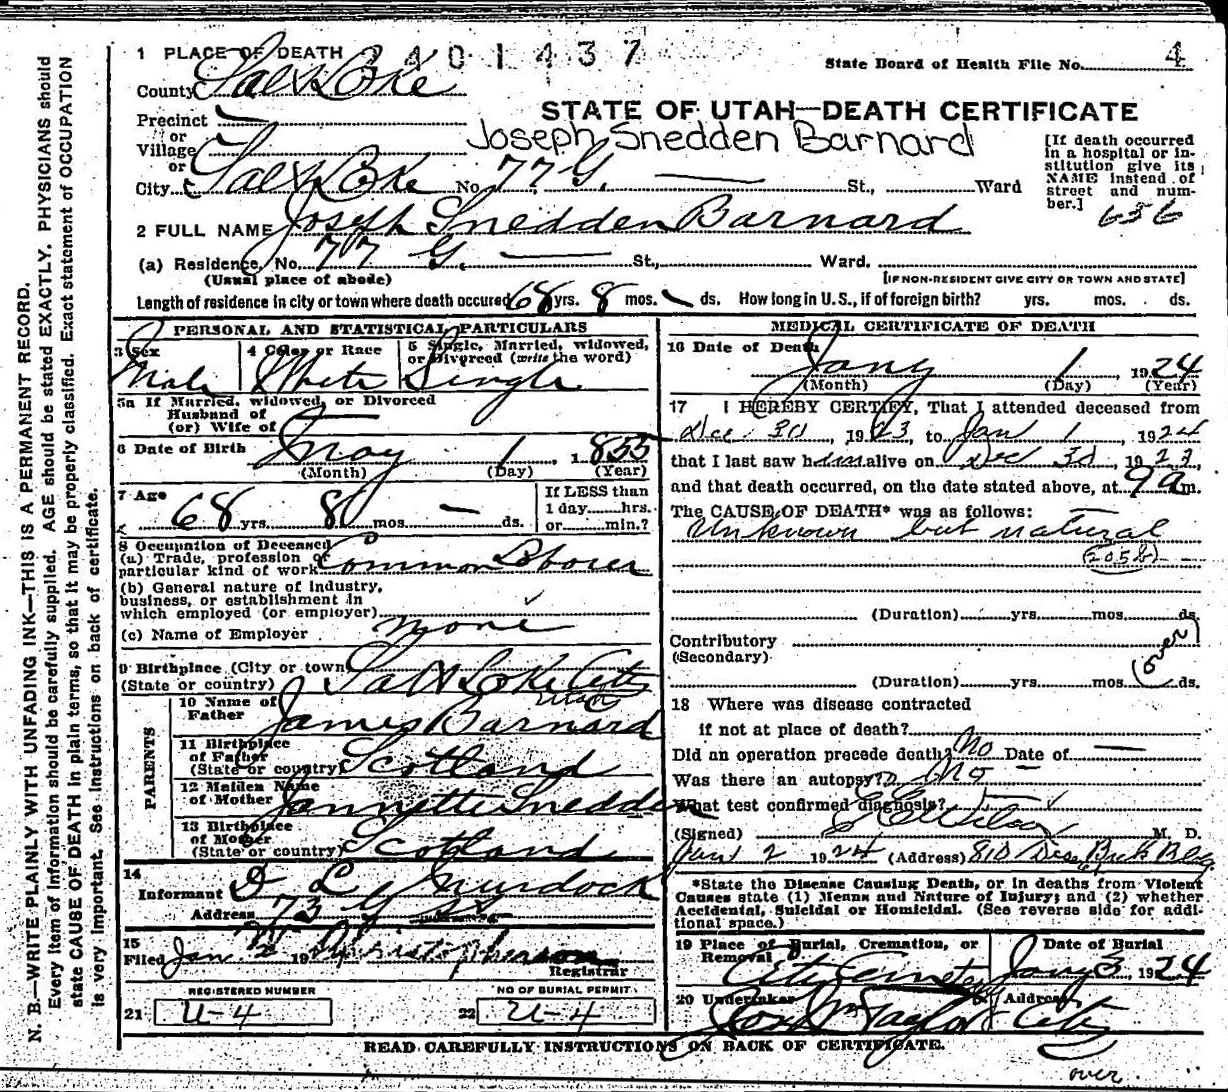 1 PLACE OF DEATH 2401437
State Board of Health File No. 4
County Salt Lake
STATE OF UTAH—DEATH CERTIFICATE
Precinct
or
Village
Joseph Snedden Barnard
or
City Salt Lake No. 77 G. St., Ward
[If death occurred
in a hospital or in-
stitution give its
NAME instead of
street and num-
ber.]
636
2 FULL NAME Joseph Snedden Barnard
(a) Residence, No. 77 G. St., Ward.
(Usual place of abode)
[IF NON-RESIDENT GIVE CITY OR TOWN AND STATE]
Length of residence in city or town where death occured 68 yrs. 8 mos. — ds. How long in U.S., if of foreign birth? yrs. mos. ds.
PERSONAL AND STATISTICAL PARTICULARS
3 Sex
Male
4 Color or Race
White
5 Single, Married, widowed,
or Divorced (write the word)
Single
5a If Married, widowed, or Divorced
Husband of
(or) Wife of
6 Date of Birth May 1, 1855
(Month) (Day) (Year)
7 Age
68 yrs. 8 mos. — ds.
If LESS than
1 day hrs.
or min.?
8 Occupation of Deceased
(a) Trade, profession or
particular kind of work Common Laborer
(b) General nature of industry,
business, or establishment in
which employed (or employer)
(c) Name of Employer None
9 Birthplace (City or town)
(State or country) Salt Lake City
Utah
PARENTS
10 Name of
Father James Barnard
11 Birthplace
of Father
(State or country) Scotland
12 Maiden Name
of Mother Jannette Snedden
13 Birthplace
of Mother
(State or country) Scotland
14
Informant D L Murdock
Address 73 G St
15
Filed Jan 2 19 Christopherson
Registrar
REGISTERED NUMBER
21 U-4
NO OF BURIAL PERMIT
22 U-4
MEDICAL CERTIFICATE OF DEATH
16 Date of Death Jany 1, 1924
(Month) (Day) (Year)
17 I HEREBY CERTIFY, That I attended deceased from
Dec 30, 1923, to Jan 1, 1924
that I last saw him alive on Dec 30, 1923,
and that death occurred, on the date stated above, at 9 a.m.
The CAUSE OF DEATH* was as follows:
Unknown but natural
(Duration) yrs. mos. ds.
Contributory
(Secondary)
(over)
(Duration) yrs. mos. ds.
18 Where was disease contracted
if not at place of death?
Did an operation precede death? No Date of —
Was there an autopsy? No
What test confirmed diagnosis?
(Signed) M. D.
Jan 2 1924 (Address) 810 Bldg.
*State the Disease Causing Death, or in deaths from Violent
Causes state (1) Means and Nature of Injury; and (2) whether
Accidental, Suicidal or Homicidal. (See reverse side for addi-
tional space.)
19 Place of Burial, Cremation, or
Removal
City Cemetery
Date of Burial
Jany 3, 1924
20 Undertaker
Jos Wm Taylor
Address
City
READ CAREFULLY INSTRUCTIONS ON BACK OF CERTIFICATE.
over
N. B.—WRITE PLAINLY WITH UNFADING INK—THIS IS A PERMANENT RECORD.
Every item of information should be carefully supplied. AGE should be stated EXACTLY. PHYSICIANS should
state CAUSE OF DEATH in plain terms, so that it may be properly classified. Exact statement of OCCUPATION
is very important. See instructions on back of certificate.